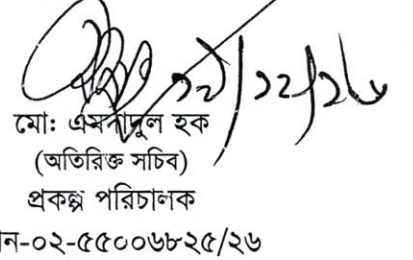 /১২/২৬
মো: এমদাদুল হক
(অতিরিক্ত সচিব)
প্রকল্প পরিচালক
ন-০২-৫৫০০৬৮২৫/২৬